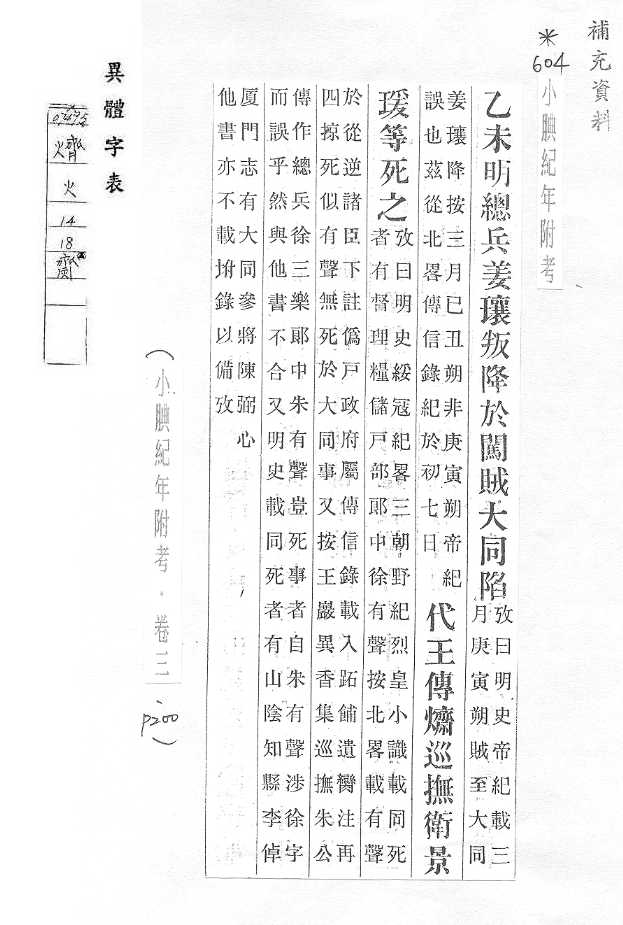 補充資料
*604
小腆紀年附考
乙未明總兵姜瓖叛降於闖賊大同陷
攷曰明史帝紀載三
月庚寅朔賊至大同
姜瓖降按三月已丑朔非庚寅朔帝紀
誤也茲從北畧傳信錄紀於初七日
代王傳㸄巡撫衛景
瑗等死之
攷曰明史綏寇紀畧三朝野紀烈皇小識載同死
者有督理糧儲戸部郞中徐有聲按北畧載有聲
於從逆諸臣下註僞戸政府屬傳信錄載入跖餔遺臠注再
四掠死似有聲無死於大同事又按王巖異香集巡撫朱公
傳作總兵徐三樂郞中朱有聲豈死事者自朱有聲涉徐字
而誤乎然與他書不合又明史載同死者有山陰知縣李倬
厦門志有大同參將陳弼心
他書亦不載坿錄以備攷
(小腆紀年附考·卷三、P200)
異體字表
㸄
火
14
18